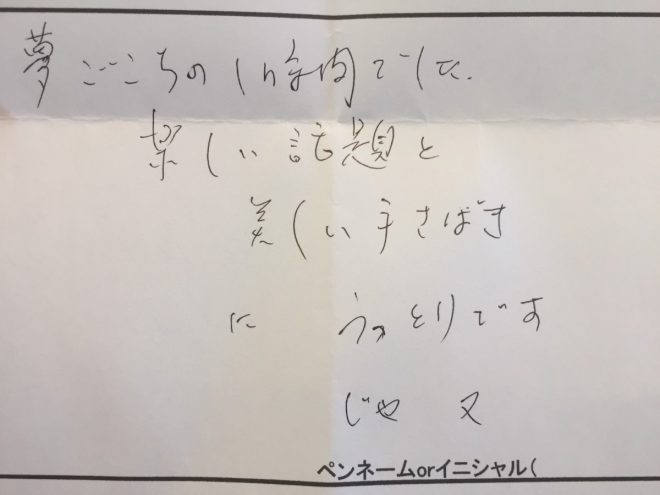 夢ごこちの1時間でした.
楽しい話題と
美しい手さばき
に うっとりです
じゃ 又
ペンネームorイニシャル(